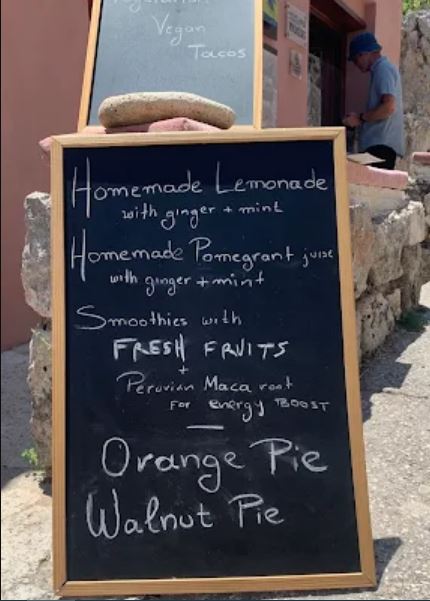 Vegetarian
Vegan
Tacos
Homemade Lemonade
with ginger + mint
Homemade Pomegrant juise
with ginger + mint
Smoothies with
FRESH FRUITS
+
Peruvian Maca root
FOR energy BOOST
Orange Pie
Walnut Pie